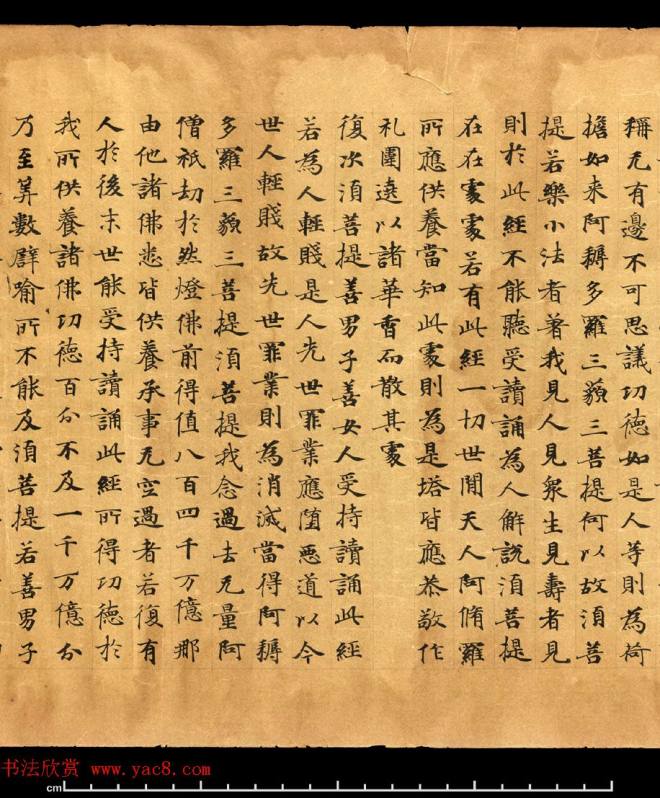 稱无有邊不可思議功徳如是人等則為荷
擔如来阿耨多羅三藐三菩提何以故湏菩
提若樂小法者著我見人見衆生見壽者見
則於此經不能聽受讀誦為人解說湏菩提
在在䖏䖏若有此經一切世間天人阿脩羅
所應供養當知此䖏則為是塔皆應恭敬作
礼圍遶以諸華香而散其䖏
復次湏菩提善男子善女人受持讀誦此經
若為人輕賤是人先世罪業應堕惡道以今
世人輕賤故先世罪業則為消滅當得阿耨
多羅三藐三菩提湏菩提我念過去无量阿
僧祇劫於然燈佛前得值八百四千万億那
由他諸佛悉皆供養承事无空過者若復有
人於後末世能受持讀誦此經所得功徳於
我所供養諸佛功徳百分不及一千万億分
乃至筭數辟喻所不能及湏菩提若善男子
书法欣赏 www.yac8.com
cm